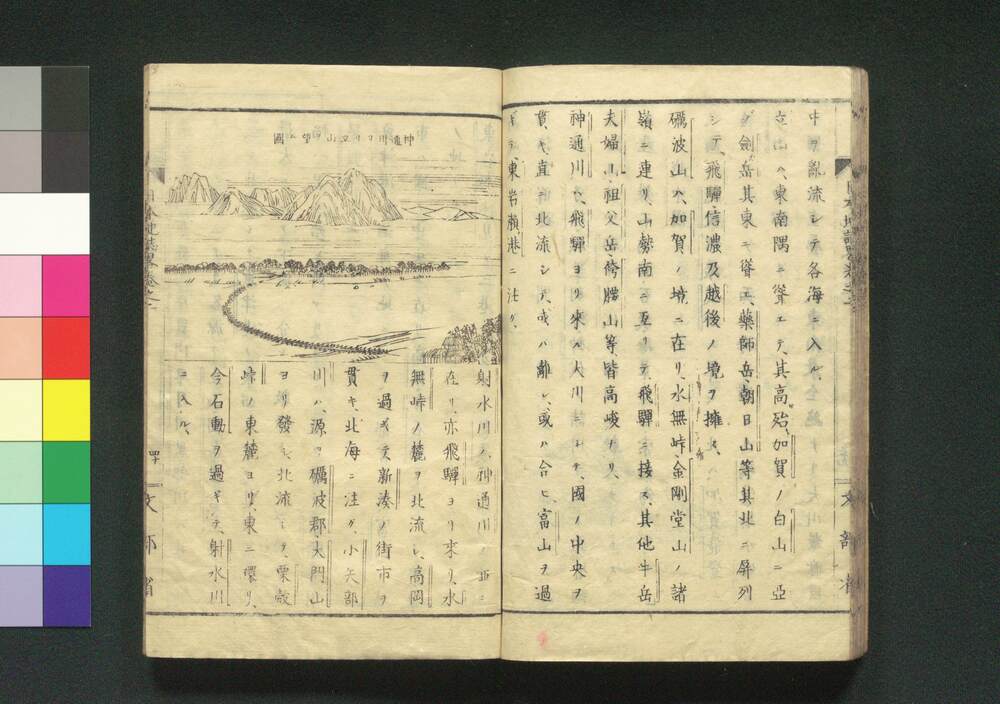 中ヲ亂流シテ各海ニ入ル、
立山ハ、東南隅ニ聳エテ、其高殆加賀ノ白山ニ亞
グ、劍岳其東ニ聳エ、藥師岳、朝日山等其北ニ屏列
シテ、飛驒、信濃及越後ノ境ヲ擁ス、
礪波山ハ、加賀ノ境ニ在リ、水無峠、金剛堂山ノ諸
嶺ニ連リ、山勢南ニ亙リテ、飛驒ニ接ス、其他牛岳
夫婦山、祖父岳、倚腰山等、皆高峻ナリ、
神通川ハ、飛驒ヨリ來ル大川ニシテ、國ノ中央ヲ
貫キ、直ニ北流シテ、或ハ離レ、或ハ合ヒ、富山ヲ過
ギテ、東岩瀨港ニ注グ、
神通川ヨリ立山ヲ望ム圖
射水川ハ、神通川ノ西ニ
在リ、亦飛驒ヨリ來リ、水
無峠ノ麓ヲ北流シ、高岡
ヲ過ギテ、新湊ノ街市ヲ
貫キ、北海ニ注グ、小矢部
川ハ、源ヲ礪波郡大門山
ヨリ發シ、北流シテ、栗殼
峠ノ東麓ヨリ、東ニ環リ、
今石動ヲ過ギテ、射水川
ニ入ル、
四
文部省
文部省